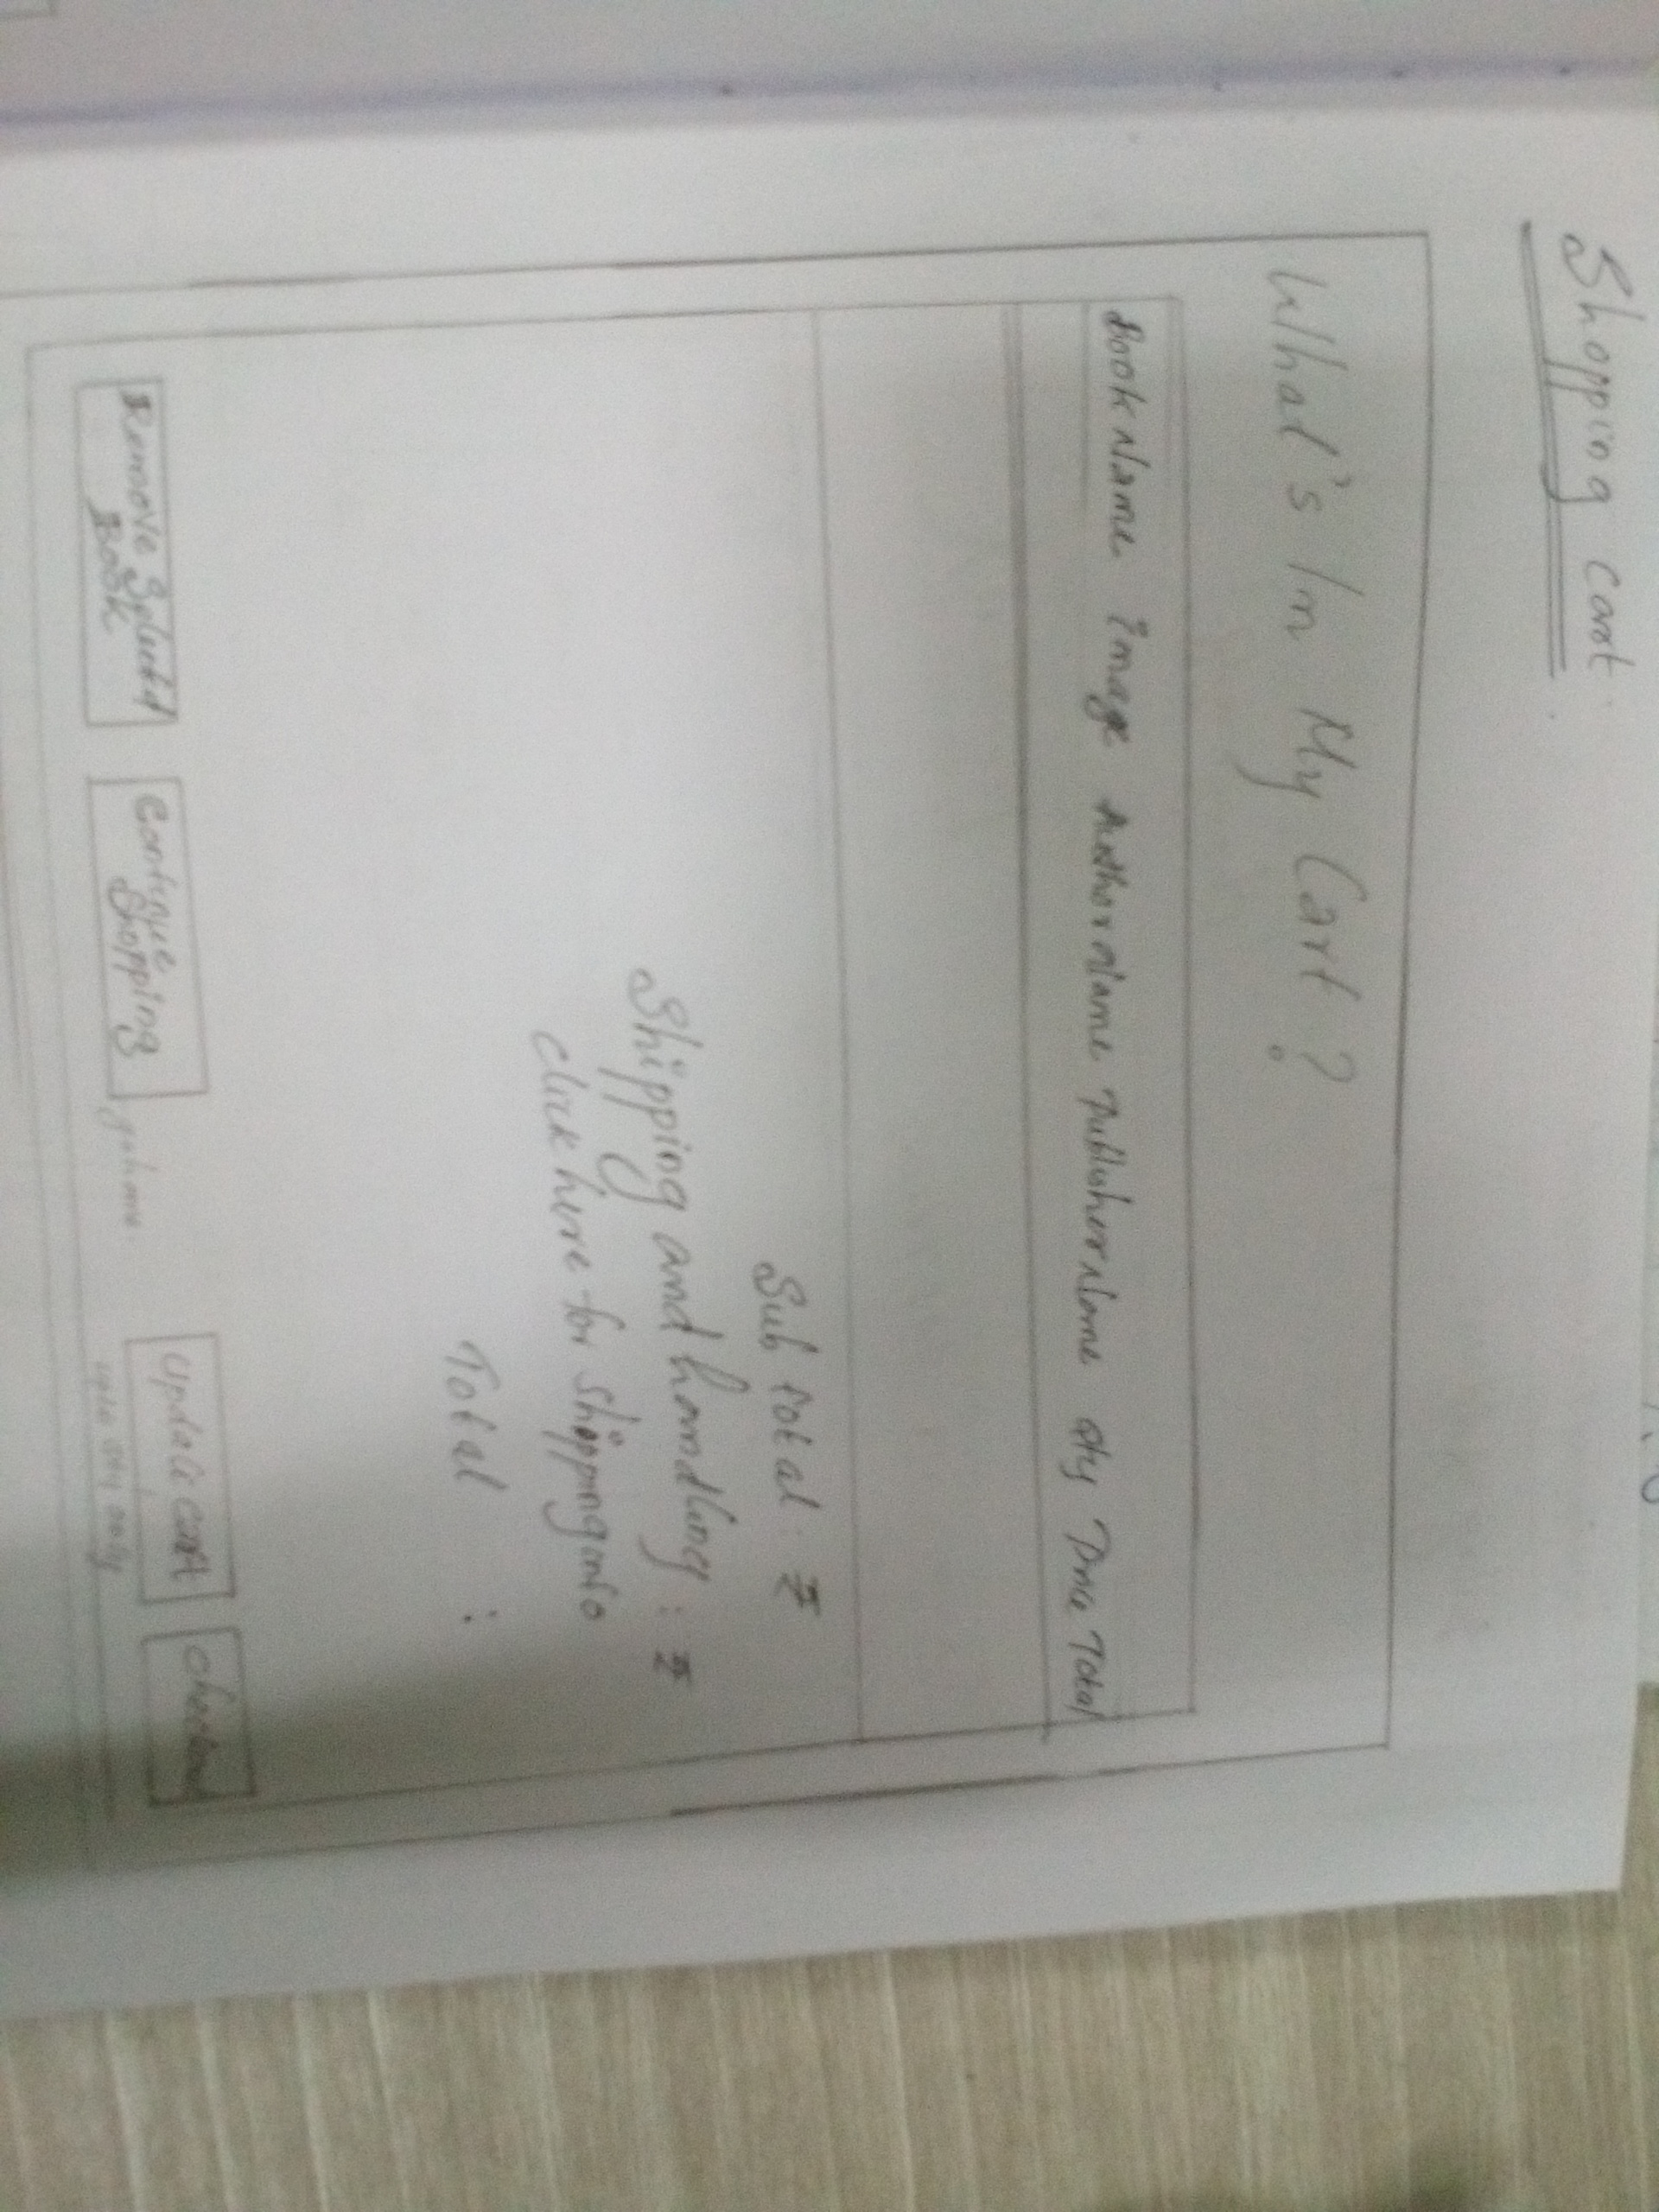 Shopping cart
What's In My Cart ?
Book Name Image Author Name Publisher Name Qty Price Total
Sub total : ₹
Shipping and handling : ₹
click here for shipping info
Total :
Remove Selected
Book
Continue
Shopping
go home
Update Cart
Checkout
qty only